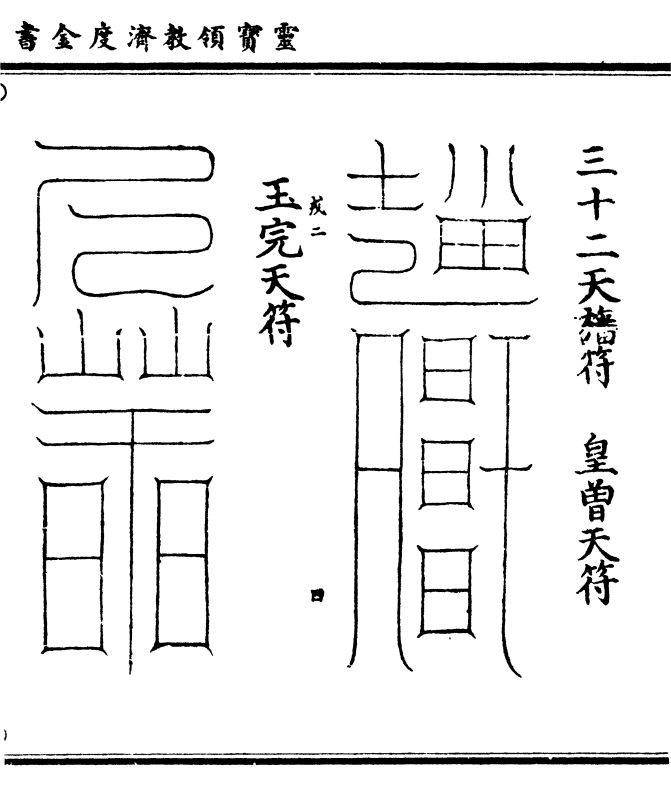 靈寶領教濟度金書
三十二天旛符　皇曾天符
戌二
四
玉完天符